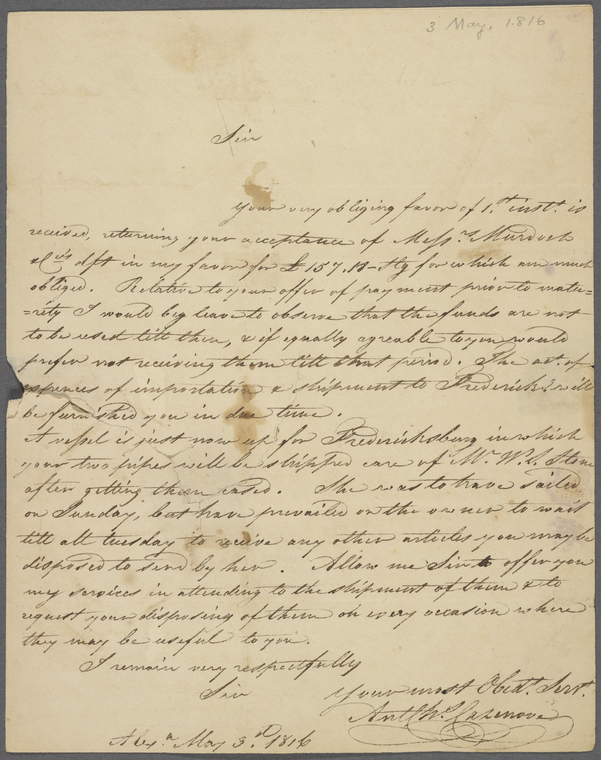 3 May, 1816
Sir
Your very obliging favor of 1.st inst.t is
received, returning your acceptance of Mess.rs Murdoch
& Co's dft in my favor for £157. Stg for which am much
obliged. Relative to your offer of payment prior to matu=
=rity I would beg leave to observe that the funds are not
to be used till then, & if equally agreeable to you would
prefer not receiving them till that period. The act. of
expences of importation & shipment to Frederick.g will
be furnished you in due time.
A vessel is just now up for Fredericksburg in which
your two pipes will be shipped care of Mr. W. S. Stone
after getting them cased. She was to have sailed
on Sunday, but have prevailed on the owner to wait
till all tuesday to receive any other articles you may be
disposed to send by her. Allow me Sir to offer you
my services in attending to the shipment of them & to
request your disposing of them on every occasion where
they may be useful to you.
I remain very respectfully
Sir Your most Obed.t Serv.t
Ant. Chs. Cazenove
Alex.a May 3.d 1816